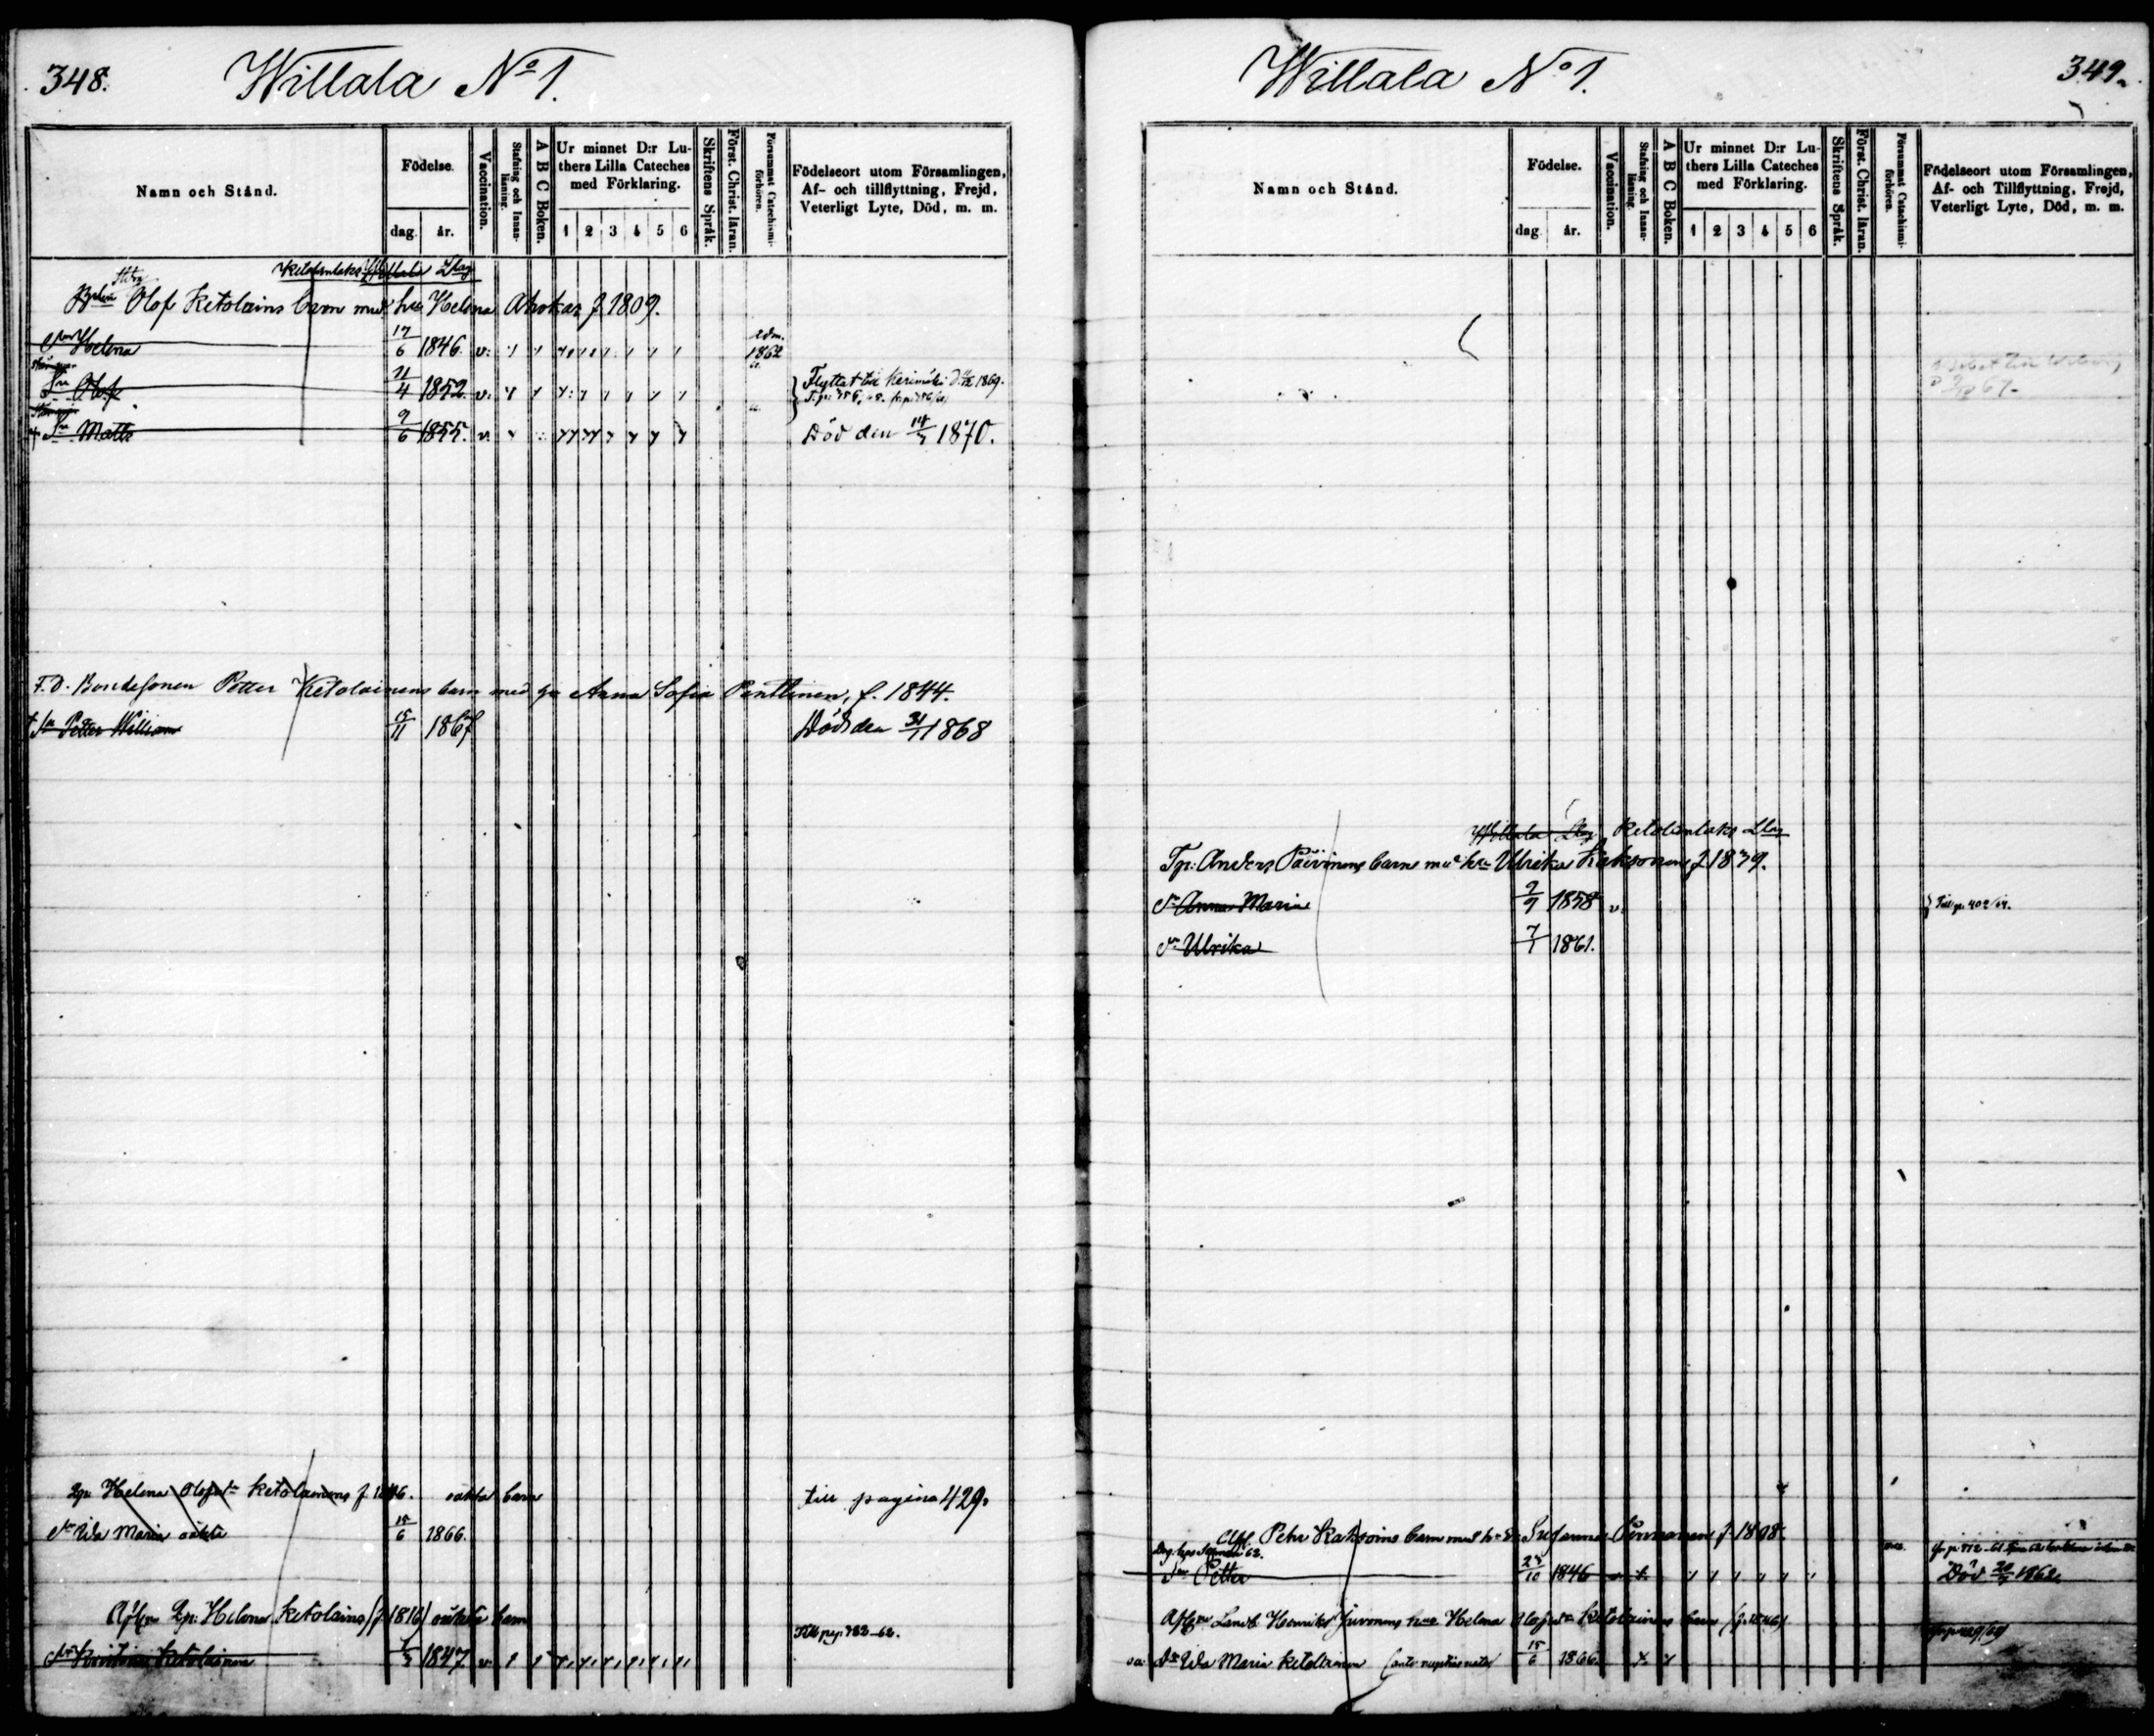 348. Willala No 1.
Namn och Stånd.
Födelse.
dag. år.
Vaccination.
Stafning och Innanläsning.
A B C Boken.
Ur minnet D:r Luthers Lilla Cateches med Förklaring.
1 2 3 4 5 6
Skriftens Språk.
Först. Christ. läran.
Försumat Catechismiförhören.
Födelseort utom Församlingen, Af- och tillflyttning, Frejd, Veterligt Lyte, Död, m. m.
Olof Ketolains barn med hu Helena Ahokas f 1809.
Helena 17/6 1846. v. 1862
Sn Olof 21/4 1852. v. Flyttat till Kerimäki d. 1869.
Sn Matts 9/6 1855. v. Död den 14/7 1870.
F.D. Bondesonen Petter Ketolainens barn med hu Anna Sofia Penttinen, f. 1844.
† Sn Petter William 15/11 1867 Död den 31/1 1868
Lp: Helena Olofsdr Ketolainens f 1846. oäkta barn till pagina 429.
Dr Ida Maria oäkta 15/6 1866.
Lp: Helena Ketolains (f 1816) oäkta barn
Dr Kristina Ketolainen 1847. v. Till pag. 782-62.
Willala No 1. 349.
Namn och Stånd.
Födelse.
dag. år.
Vaccination.
Stafning och Innanläsning.
A B C Boken.
Ur minnet D:r Luthers Lilla Cateches med Förklaring.
1 2 3 4 5 6
Skriftens Språk.
Först. Christ. läran.
Försumat Catechismiförhören.
Födelseort utom Församlingen, Af- och Tillflyttning, Frejd, Veterligt Lyte, Död, m. m.
Willala Lag Ketolanlaks Lag
Anders Päivinens barn med hu Ulrika f 1839.
Dr Anna Maria 2/9 1858 v. Till p. 402/64.
Dr Ulrika 7/1 1861.
Pehr Kaksoins barn med hu Susanna f 1808.
Sn Petter 28/10 1846 Död 1862.
Landb Henriks Juvonens hus Helena Olofsdr Ketolainens barn (f. 1846)
Dr Ida Maria Ketolainen (ante nuptias nata) 15/6 1866.